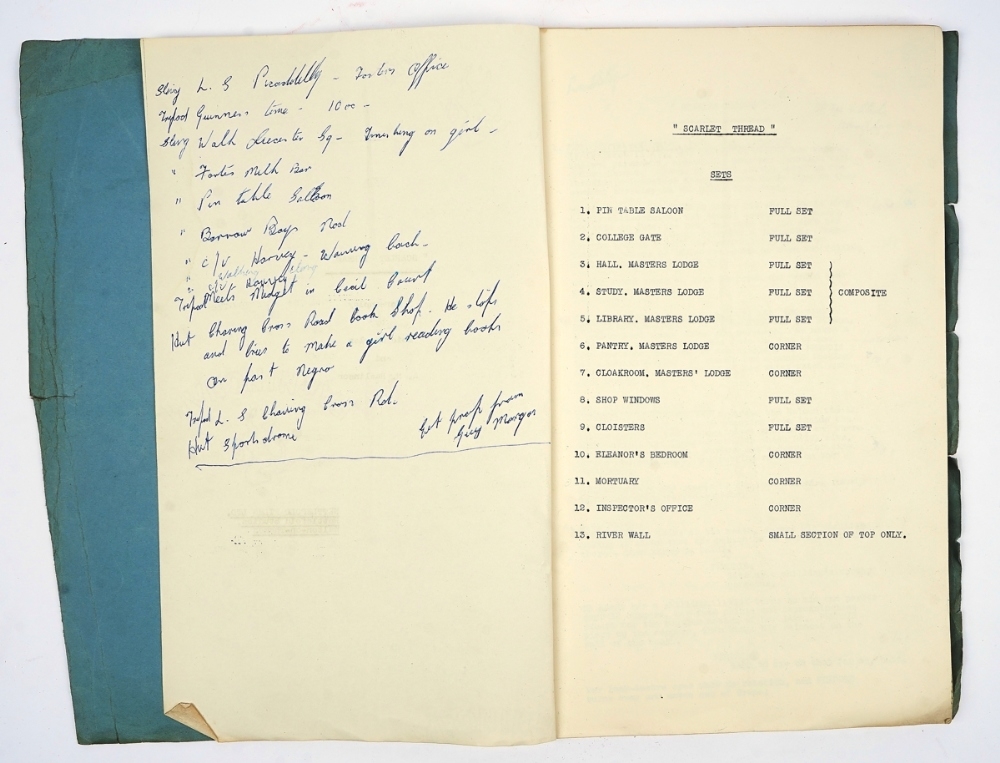 L. S Piccadilly - Fortes Office
Tripod Guinness time - 10 oc -
Walk Leicester Sq - finishing on girl -
" Fortes Milk Bar
" Pin table Salloon
" Barrow Boys
" c/u Harvey - Warning back -
" Walking
Tripod Meets Midget in Cecil Court
Charing Cross Road book Shop. He stops
and tries to make a girl reading books
on past Negro
Tripod L. S Charing Cross Rd.
Sportsdrome
Get prop from
Guy Morgan
" SCARLET THREAD "
SETS
1. PIN TABLE SALOON FULL SET
2. COLLEGE GATE FULL SET
3. HALL. MASTERS LODGE FULL SET
4. STUDY. MASTERS LODGE FULL SET COMPOSITE
5. LIBRARY. MASTERS LODGE FULL SET
6. PANTRY. MASTERS LODGE CORNER
7. CLOAKROOM. MASTERS' LODGE CORNER
8. SHOP WINDOWS FULL SET
9. CLOISTERS FULL SET
10. ELEANOR'S BEDROOM CORNER
11. MORTUARY CORNER
12. INSPECTOR'S OFFICE CORNER
13. RIVER WALL SMALL SECTION OF TOP ONLY.